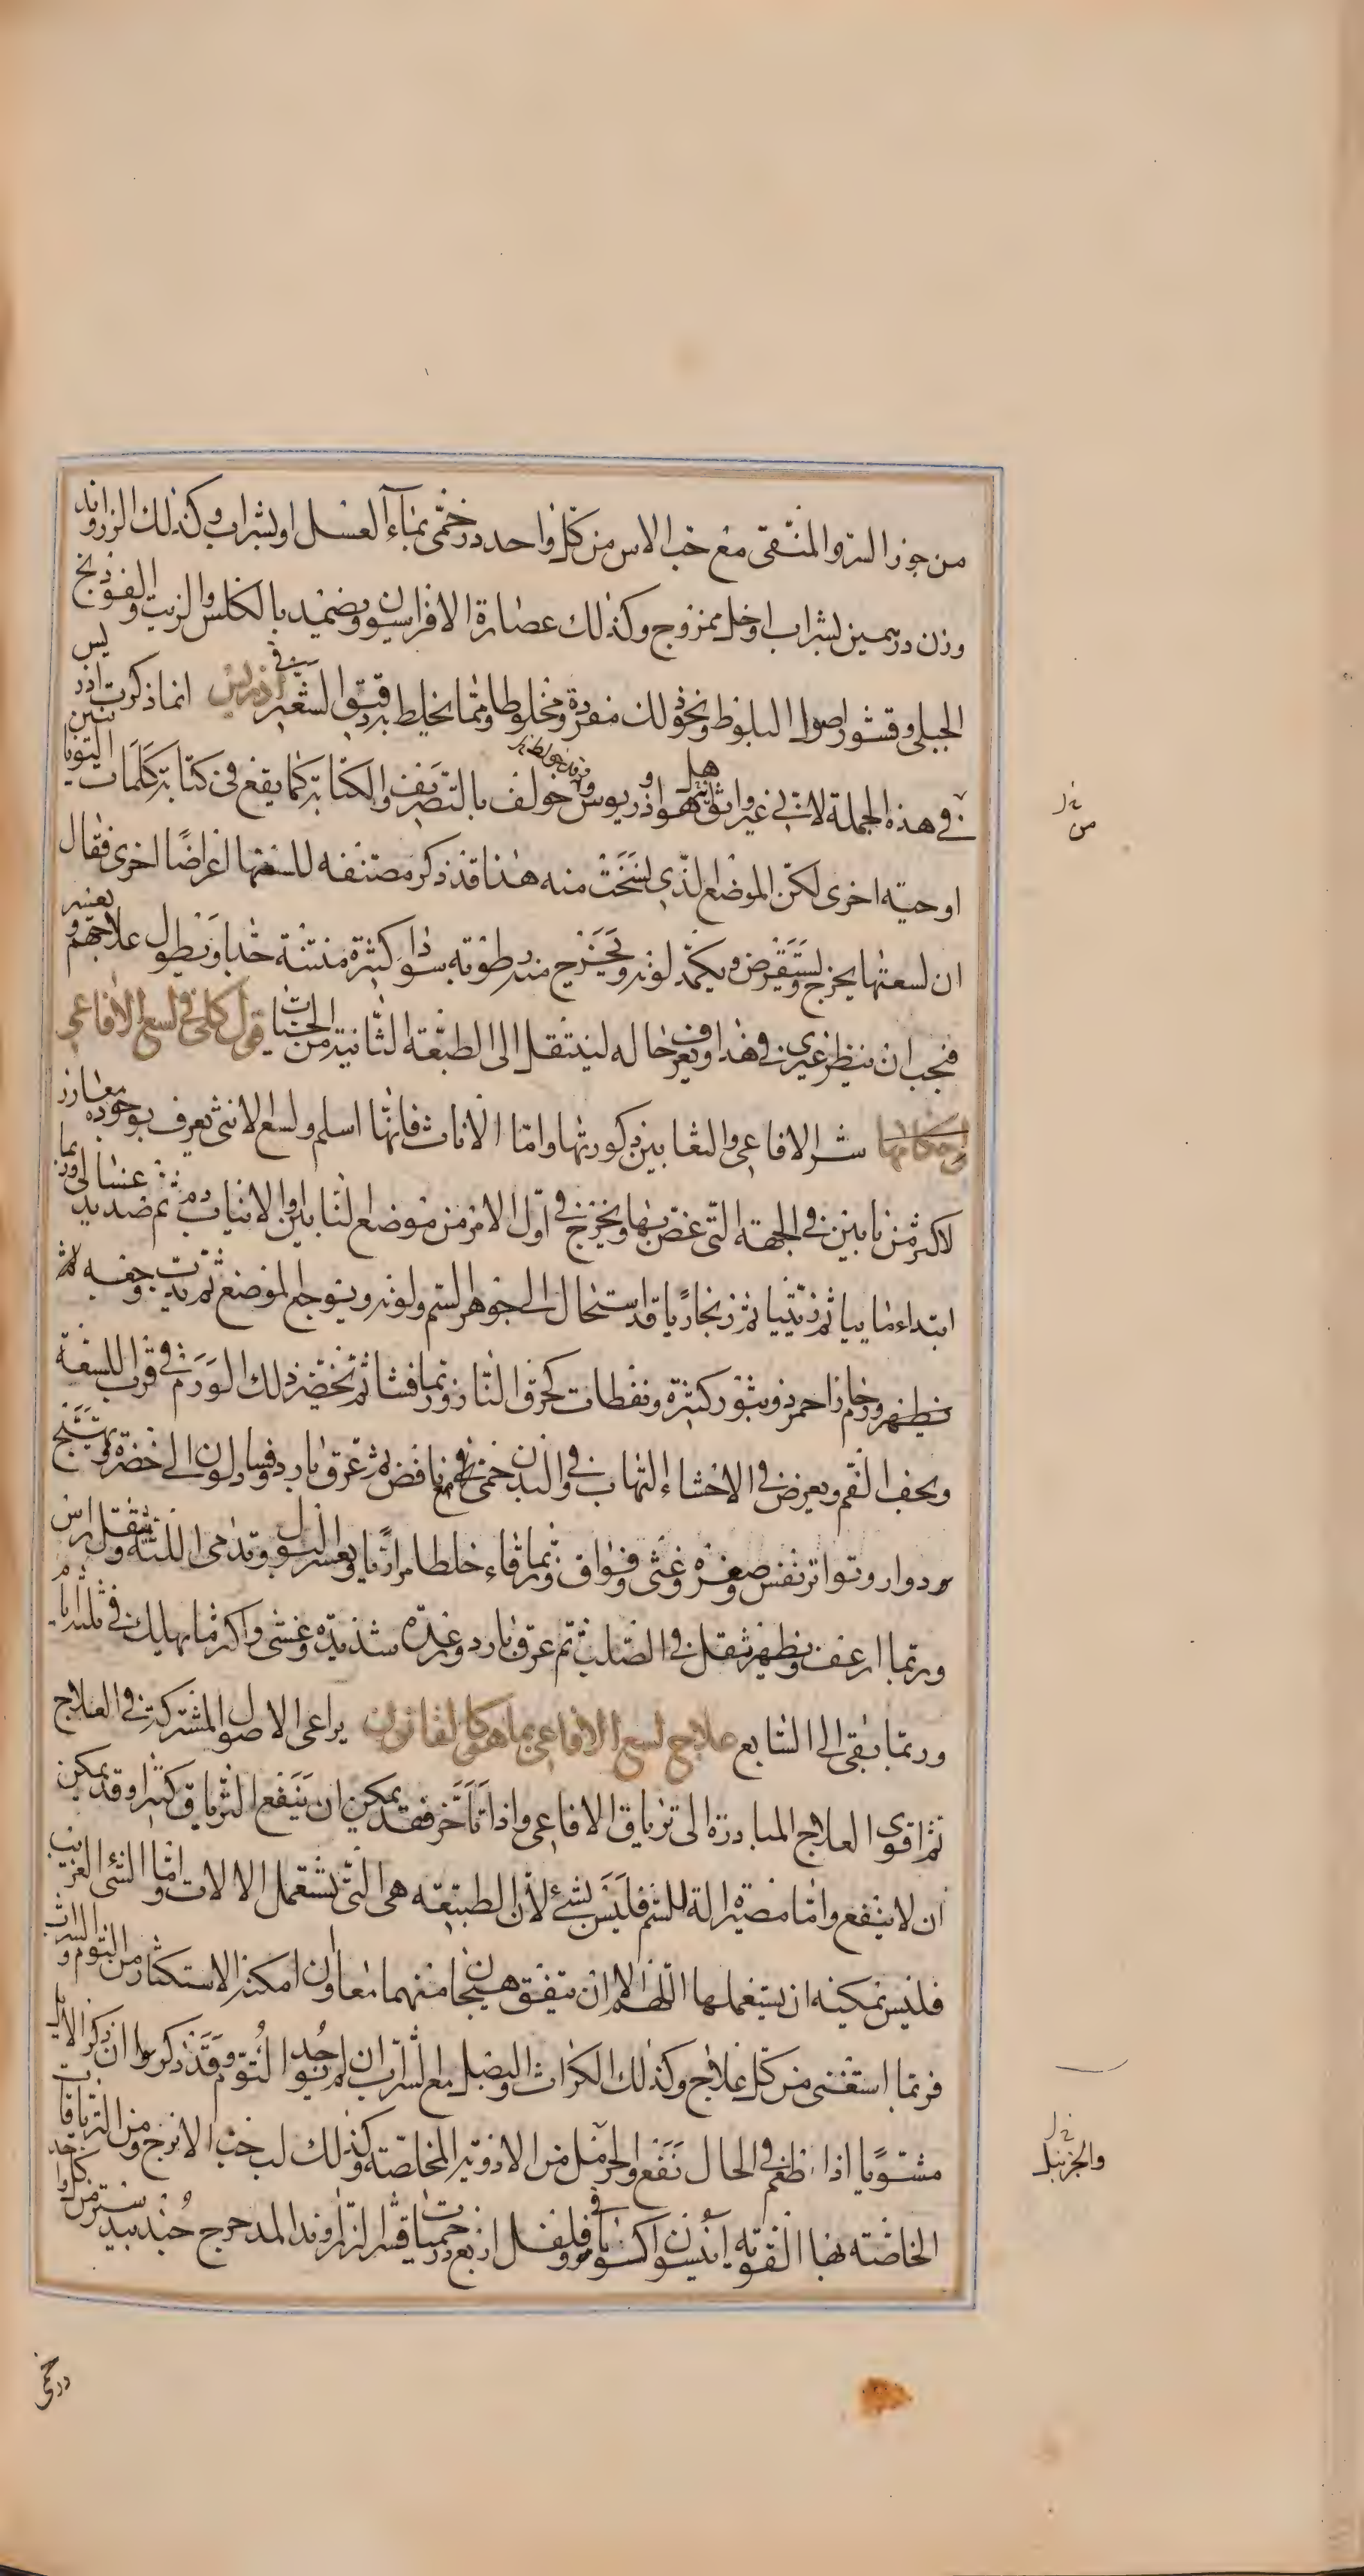 من جوز السرو المنقى مع حب الاس من كل واحد درخمى بماء العسل او بشراب وكذلك الزراوند
وزن درهمين بشراب او خل ممزوج وكذلك عصارة الافراسيون ويضمد بالكلس والزيت والفودنج
الجبلى وقشور اصول البلوط ونحو ذلك مفردة ومخلوطا ومما يخلط به دقيق الشعير فى اذريس انما ذكرت اذريس
فى هذه الجملة لانى غير واثق هل هو اذريوس وقد خولف بالتصريف والكتابة كما يقع فى كتابة كلمات اليونانيين
او حية اخرى لكن الموضع الذى نسخت منه هذا قد ذكر مصنفه للسعتها اعراضا اخرى فقال
ان لسعتها يخرج ويتقرض ويكمد لونه ويخرج منه رطوبة سوداء كثيرة منتنة جدا ويطول علاجهم ويعسر
فيجب ان ينظر غيرى فى هذا ويعرف حاله لينتقل الى الطبقة الثانية من الحيات قول كلى فى لسع الافاعى
واحكامها شر الافاعى والثعابين ذكورتها واما الاناث فانها اسلم ولسع الانثى يعرف بوجوده مغارز
لاكثر من نابين فى الجهة التى عض بها ويخرج فى اول الامر من موضع النابين والانياب دم ثم صديد غسالى وربما
ابتداء مائيا ثم زيتيا ثم زنجاريا قد استحال الى جوهر السم ولونه ويتوجع الموضع ثم يدب وجعه ثم
يظهر ورم حار احمر ذو بثور كثيرة ونفطات كحرق النار وربما فشا ثم تخضر ذلك الورم فى قرب اللسعة
ويجف الفم ويعرض فى الاحشاء التهاب وفى البدن حمى مع نافض ثم عرق بارد وفساد لون الى خضرة وتهيج
دوار وتواتر نفس وصغره وغثى وفواق وربما قاء خلطا مراريا ويعسر البول وتدمى اللثة ويثقل الراس
وربما ارعف ويظهر ثقل فى الصلب ثم عرق بارد ورعدة شديدة وغشى واكثر ما يهلك فى ثلثة ايام
وربما بقى الى السابع علاج لسع الافاعى بما هو كالقانون يراعى الاصول المشتركة فى العلاج
ثم اقوى العلاج المبادرة الى ترياق الافاعى واذا تأخر فقد يمكن ان ينفع الترياق كثيرا وقد يمكن
ان لا ينفع واما مصيره الة للسم فليس بشئ لان الطبيعة هى التى تستعمل الالات واما الشئ الغريب
فليس يمكنه ان يستعملها اللهم الا ان يتفق هيجان منهما معا وان امكنه الاستكثار من الثوم والشراب
فربما استغنى من كل علاج وكذلك الكراث والبصل مع الشراب ان لم يوجد الثوم وقد ذكروا ان ذكر الايل
مشويا اذا طعم فى الحال نفع والحرمل من الادوية المخلصة وكذلك لب حب الاترج ومن الترياقات
الخاصة بها القوية انيسون اكسونافن وفلفل اربع درخميات قشر الزراوند المدحرج جندبيدستر من كل واحد
من
والجزنبل
درخمى